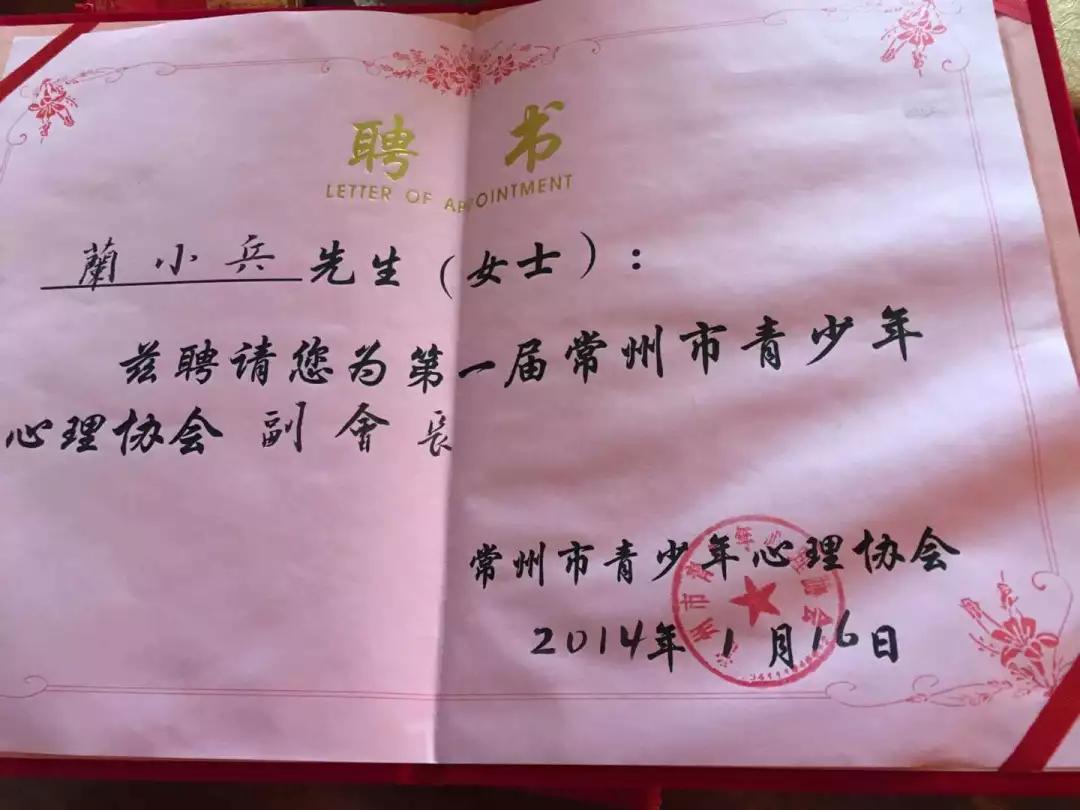 聘书
LETTER OF APPOINTMENT
蘭小兵先生(女士):
兹聘请您为第一届常州市青少年
心理协会副會長
常州市青少年心理协会
2014年1月16日